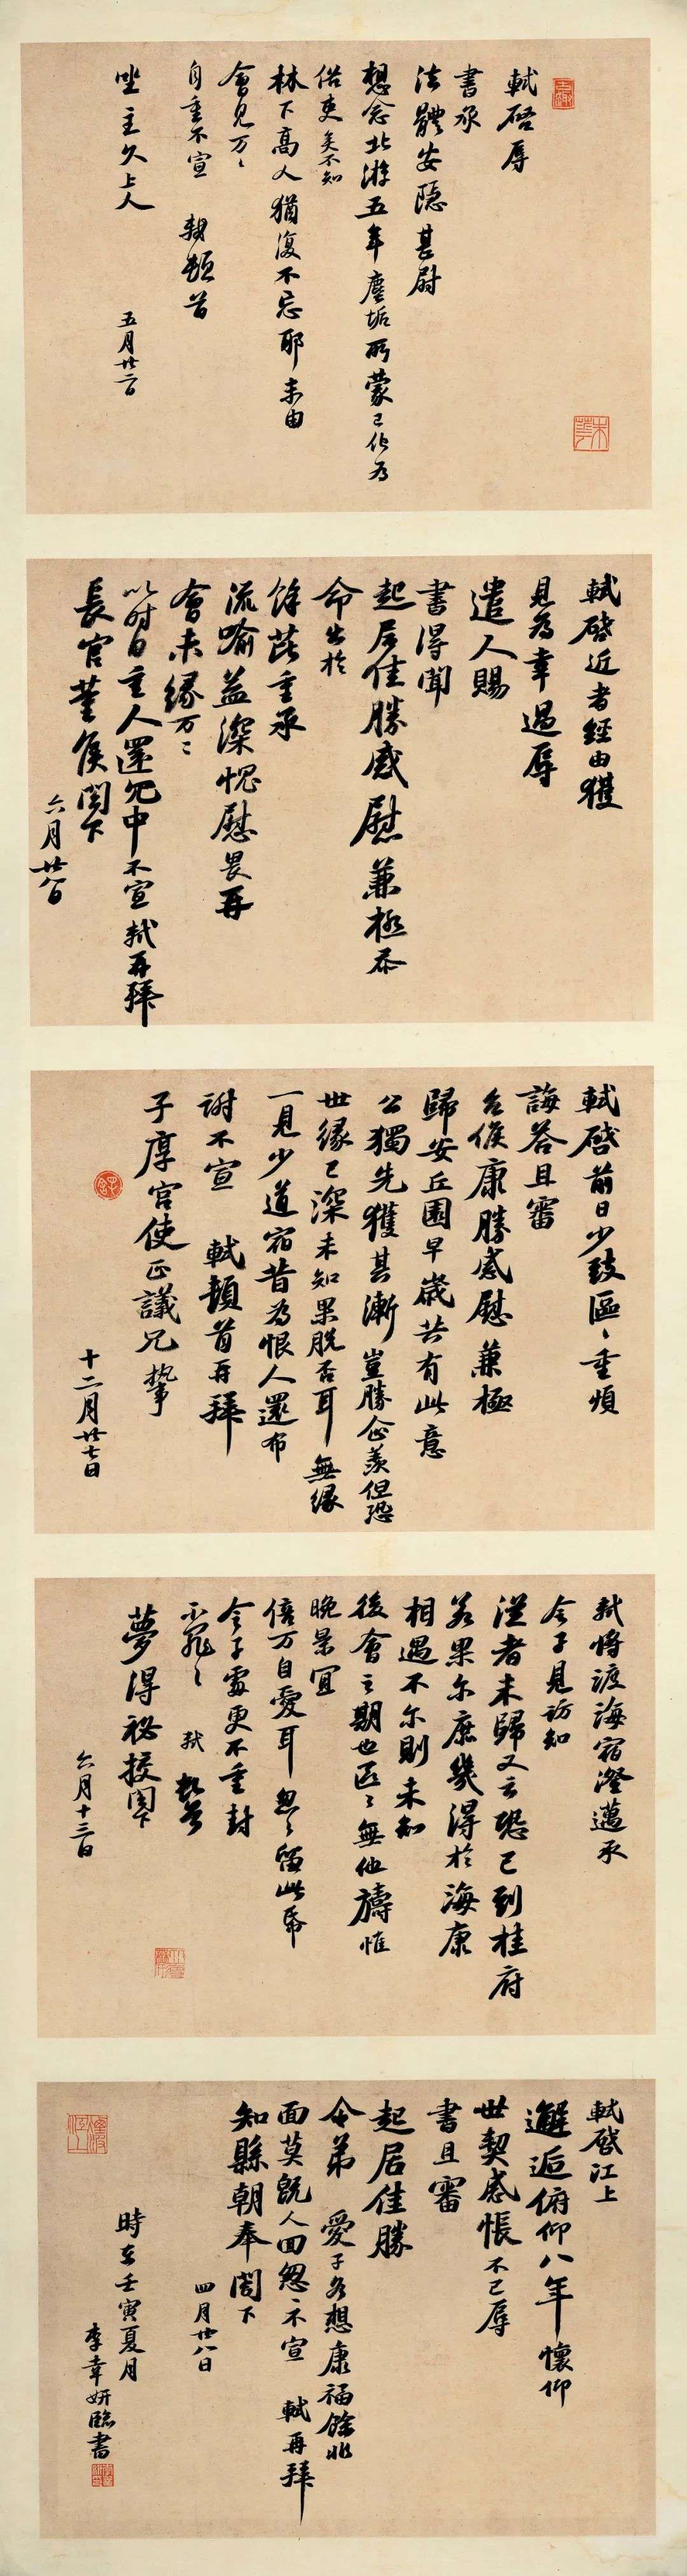 軾啓辱
書承
法體安隱甚尉
想念北游五年塵垢所蒙已化為
俗吏矣不知
林下高人猶復不忘耶未由
會見万〻
自重不宣 軾頓首
坐主久上人
五月廿二日
軾啓近者經由獲
見為幸過辱
遣人賜
書得聞
起居佳勝感慰兼極忝
命出於
餘芘重承
流喻益深愧慰畏再
會未緣万〻
以時自重人還冗中不宣軾再拜
長官董侯閤下
六月廿八日
軾啓前日少致區〻重煩
誨答且審
台候康勝感慰兼極
歸安丘園早歲共有此意
公獨先獲其漸豈勝企羨但恐
世緣已深未知果脫否耳無緣
一見少道宿昔為恨人還布
謝不宣 軾頓首再拜
子厚宮使正議兄執事
十二月廿七日
軾將渡海宿澄邁承
令子見訪知
從者未歸又云恐已到桂府
若果尔庶幾得於海康
相遇不尔則未知
後會之期也區〻無他禱惟
晚景宜
倍万自愛耳忽〻留此帋
令子處更不重封
不罪〻 軾頓首
夢得祕校閣下
六月十三日
軾啓江上
邂逅俯仰八年懷仰
世契感悵不已辱
書且審
起居佳勝
令弟 愛子各想康福餘非
面莫既人回怱〻不宣 軾再拜
知縣朝奉閤下
四月廿八日
時在壬寅夏月
李幸妍臨書